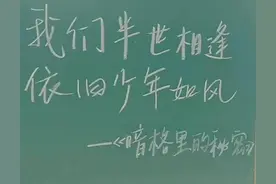 我们半世相逢
依旧少年如风
——《暗格里的秘密》